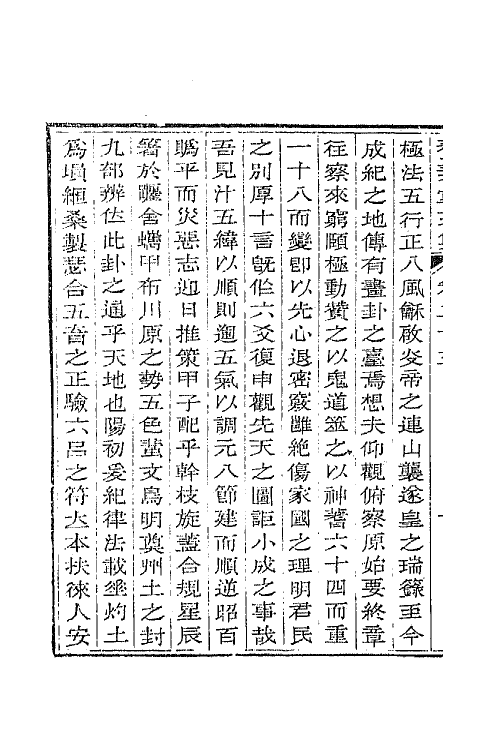 極法五行正八風龢啟炎帝之連山襲遂皇之瑞籙至今
成紀之地傳有畫卦之臺焉想夫仰觀俯察原始要終章
往察來窮賾極動贊之以鬼道筮之以神蓍六十四而重
一十八而變卽以先心退密竅雖絶傷家國之理明君民
之別原十言旣作六爻復申觀先天之圖詎小成之事哉
吾見汁五緯以順則迴五氣以調元八節建而順逆昭百
騶平而災惡志迎日推策甲子配乎幹枝旋蓋合規星辰
箸於曬舍蠣甲布川原之勢五色螢文鳥明奠州土之封
九部辨佐此卦之通乎天地也陽初爰紀律法載垂灼土
爲塤絙桑製瑟合五音之正驗六呂之符大本扶徠人安